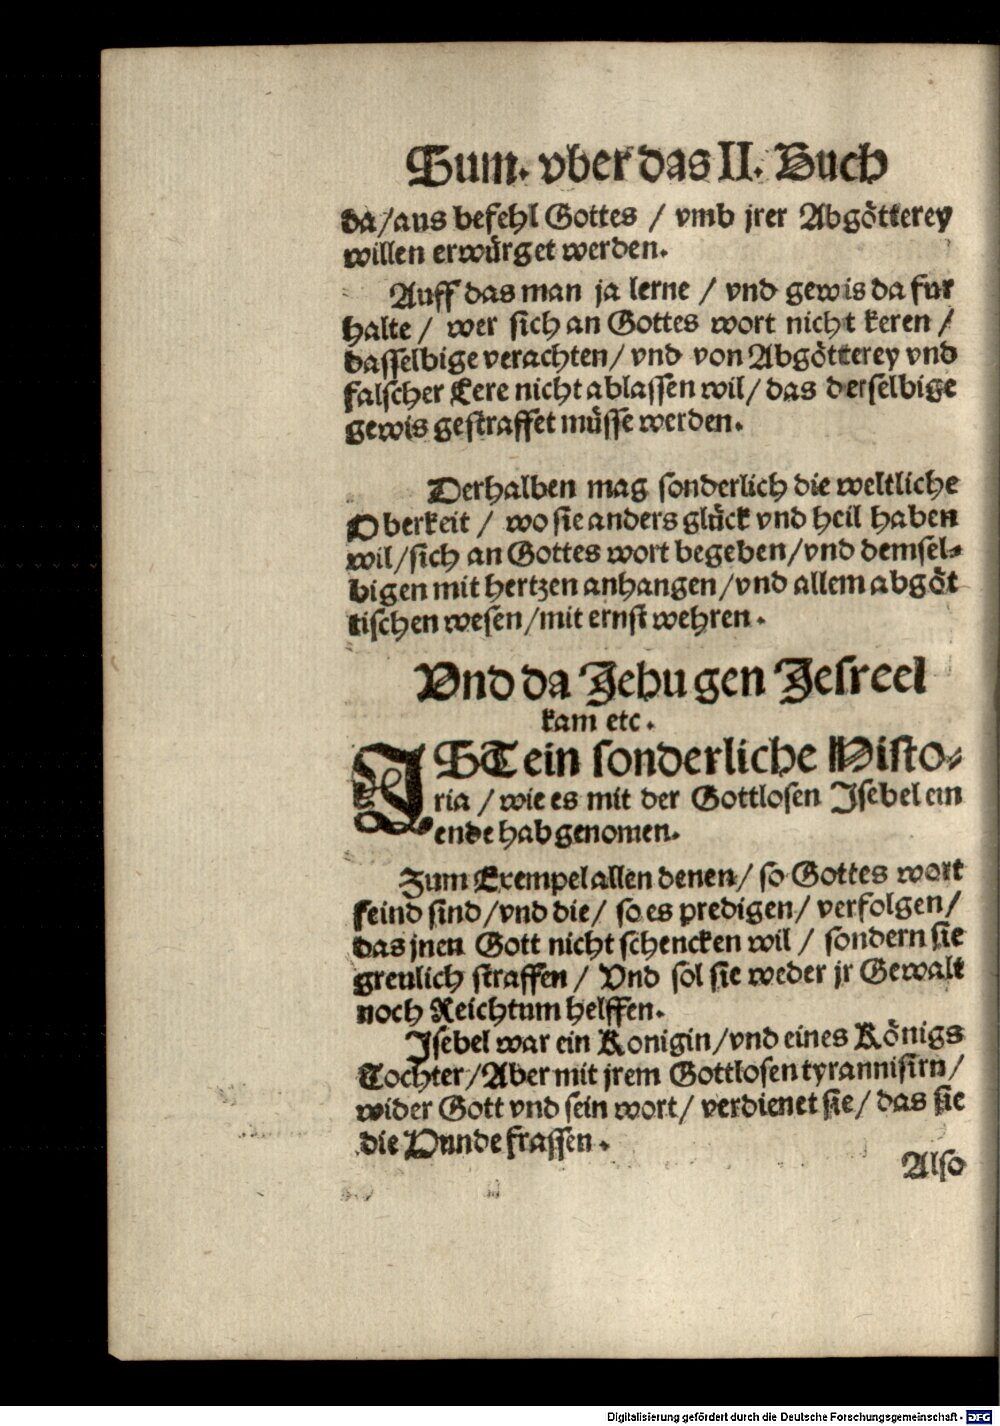 Sum. vber das II. Buch
da/aus befehl Gottes / vmb jrer Abgötterey
willen erwürget werden.
Auff das man ja lerne / vnd gewis da fur
halte / wer sich an Gottes wort nicht keren /
dasselbige verachten/ vnd von Abgötterey vnd
falscher Lere nicht ablassen wil/ das derselbige
gewis gestraffet müsse werden.
Derhalben mag sonderlich die weltliche
Oberkeit / wo sie anders glück vnd heil haben
wil/sich an Gottes wort begeben/vnd demsel-
bigen mit hertzen anhangen/vnd allem abgöt
tischen wesen/mit ernst wehren.
Vnd da Jehu gen Jesreel
kam etc.
IST ein sonderliche Histo-
ria / wie es mit der Gottlosen Jsebel ein
ende hab genomen.
Zum Exempel allen denen/ so Gottes wort
feind sind/vnd die/ so es predigen/ verfolgen/
das jnen Gott nicht schencken wil / sondern sie
greulich straffen / Vnd sol sie weder jr Gewalt
noch Reichtum helffen.
Jsebel war ein Konigin/vnd eines Königs
Tochter/Aber mit jrem Gottlosen tyrannisirn/
wider Gott vnd sein wort/ verdienet sie/ das sie
die Hunde frassen.
Also
Digitalisierung gefördert durch die Deutsche Forschungsgemeinschaft - DFG